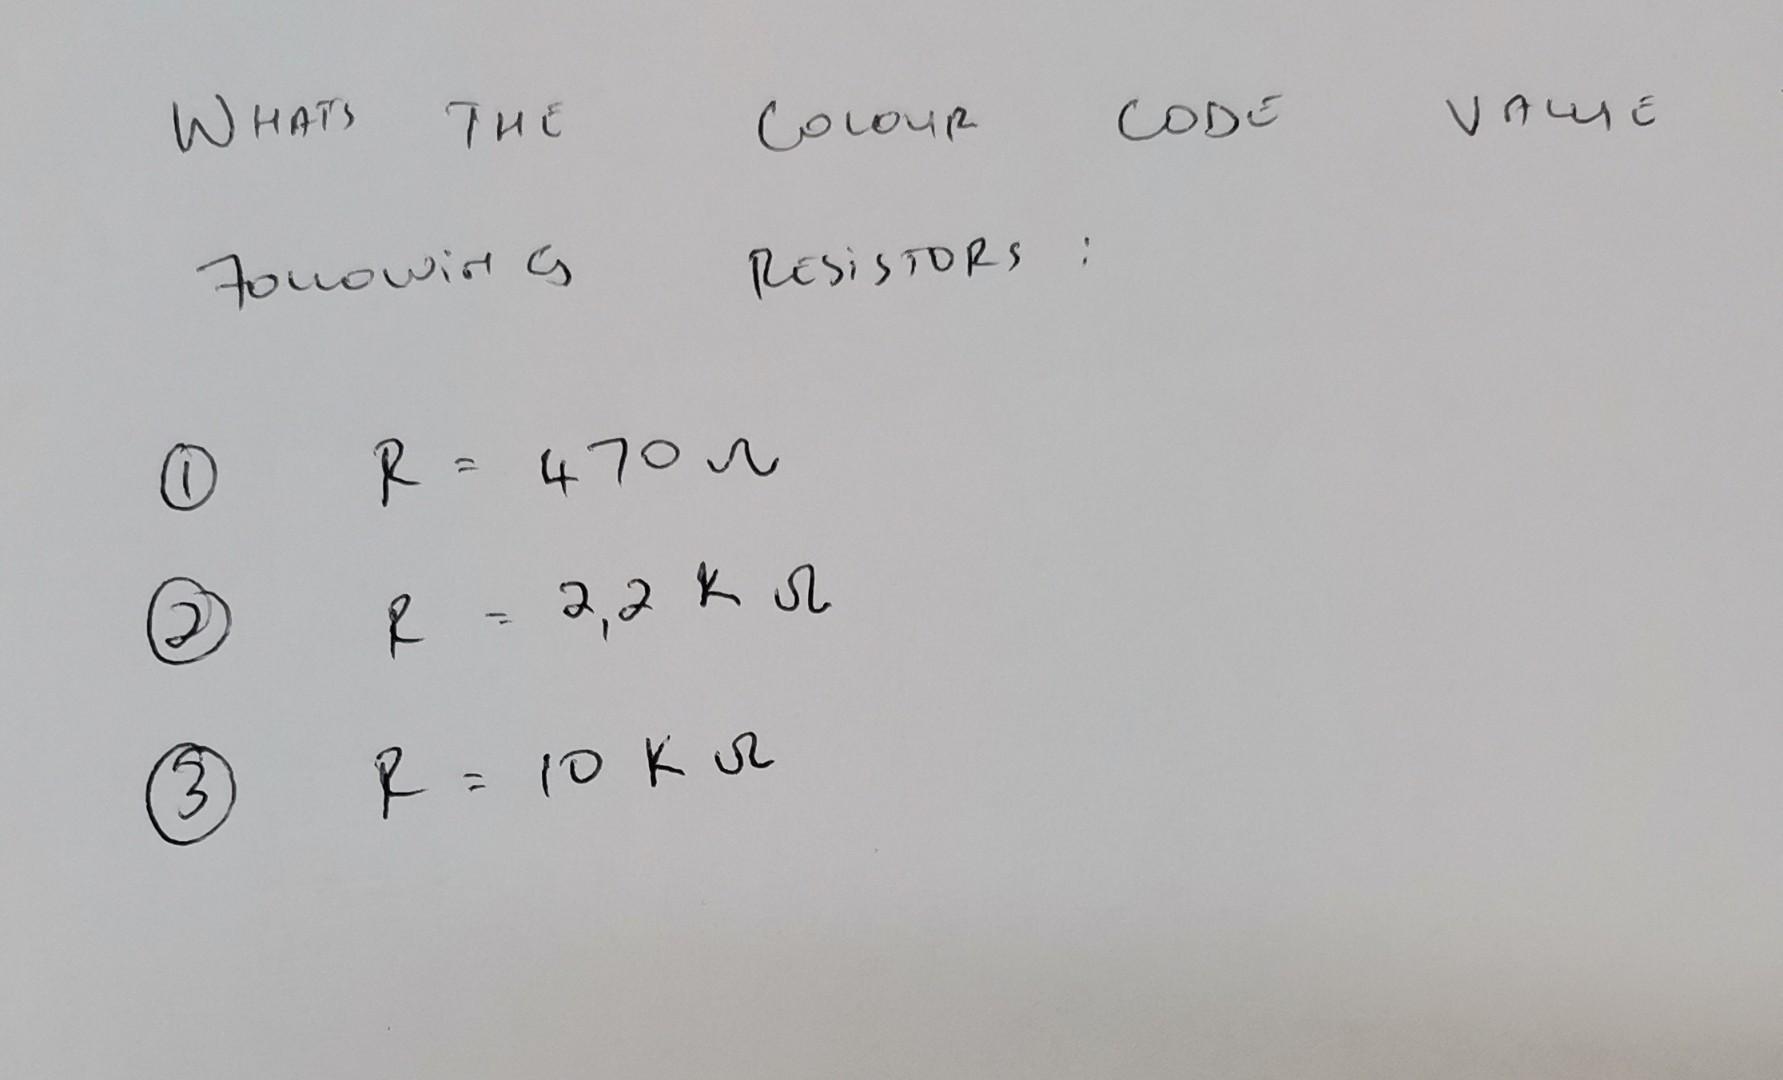 WHATS THE COLOUR CODE VALUE
FOLLOWING RESISTORS :
① R = 470 Ω
② R = 2,2 K Ω
③ R = 10 K Ω